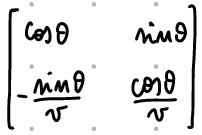 cosθ sinθ
-sinθ/v cosθ/v